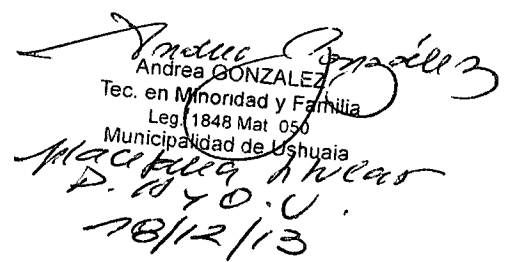 Andrea González
Andrea GONZALEZ
Tec. en Minoridad y Familia
Leg. 1848 Mat 050
Municipalidad de Ushuaia
D. A y O. U.
18/12/13